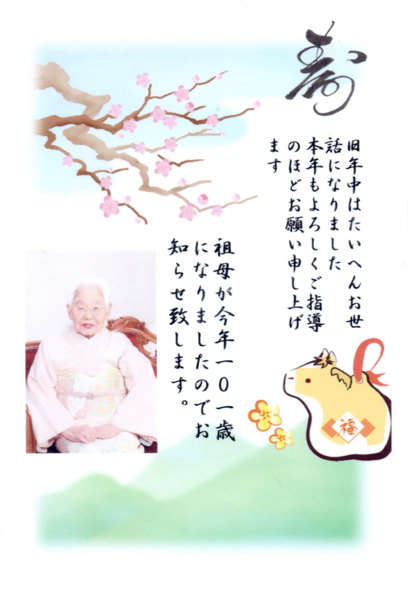 寿
旧年中はたいへんお世
話になりました
本年もよろしくご指導
のほどお願い申し上げ
ます
祖母が今年一〇一歳
になりましたのでお
知らせ致します。
福